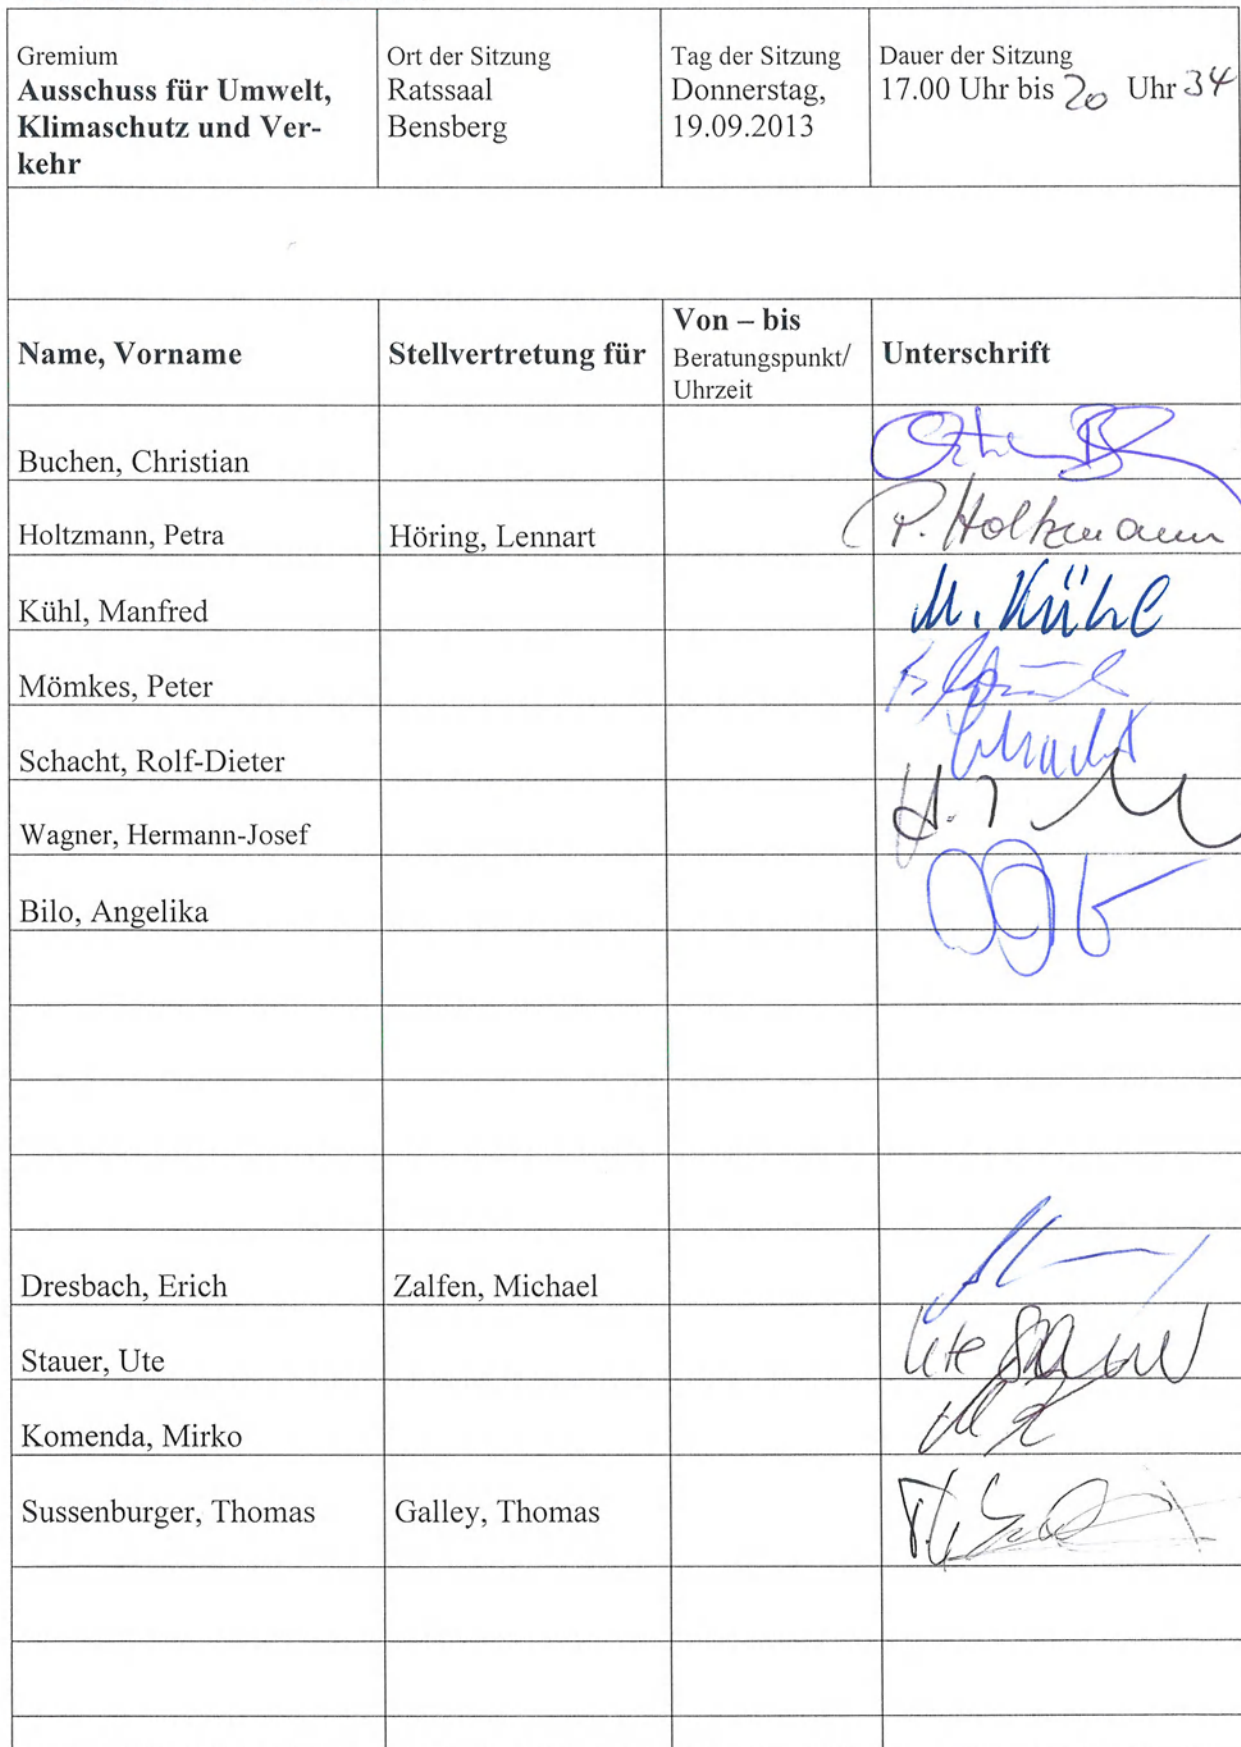 Gremium
Ausschuss für Umwelt,
Klimaschutz und Ver-
kehr
Ort der Sitzung
Ratssaal
Bensberg
Tag der Sitzung
Donnerstag,
19.09.2013
Dauer der Sitzung
17.00 Uhr bis 20 Uhr 34
Name, Vorname
Stellvertretung für
Von – bis
Beratungspunkt/
Uhrzeit
Unterschrift
Buchen, Christian
Holtzmann, Petra Höring, Lennart P. Holtzmann
Kühl, Manfred M. Kühl
Mömkes, Peter
Schacht, Rolf-Dieter Schacht
Wagner, Hermann-Josef
Bilo, Angelika
Dresbach, Erich Zalfen, Michael
Stauer, Ute Ute Stauer
Komenda, Mirko
Sussenburger, Thomas Galley, Thomas